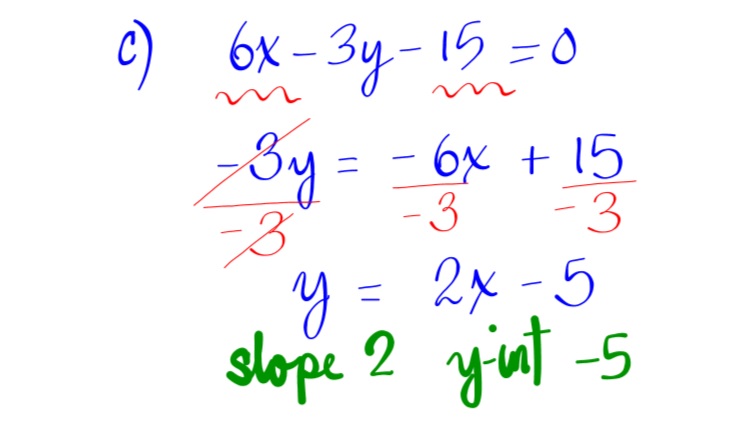 c) 6x - 3y - 15 = 0
-3y = -6x + 15
-3 -3 -3
y = 2x - 5
slope 2 y-int -5